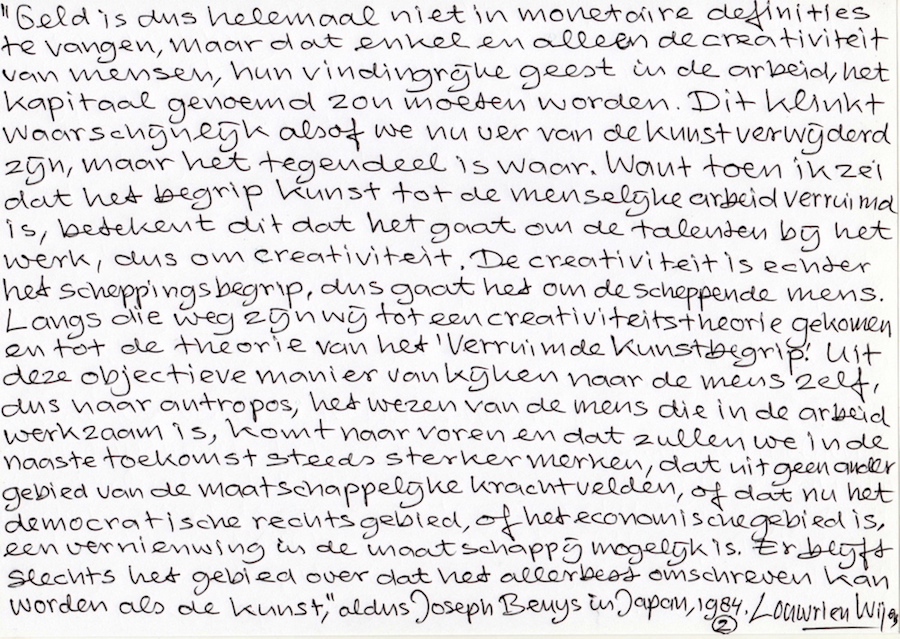 "Geld is dus helemaal niet in monetaire definities
te vangen, maar dat enkel en alleen de creativiteit
van mensen, hun vindingrijke geest in de arbeid, het
kapitaal genoemd zou moeten worden. Dit klinkt
waarschijnlijk alsof we nu ver van de kunst verwijderd
zijn, maar het tegendeel is waar. Want toen ik zei
dat het begrip kunst tot de menselijke arbeid verruimd
is, betekent dit dat het gaat om de talenten bij het
werk, dus om creativiteit. De creativiteit is echter
het scheppingsbegrip, dus gaat het om de scheppende mens.
Langs die weg zijn wij tot een creativiteitstheorie gekomen
en tot de theorie van het 'Verruimde Kunstbegrip'. Uit
deze objectieve manier van kijken naar de mens zelf,
dus naar antropos, het wezen van de mens die in de arbeid
werkzaam is, komt naar voren en dat zullen we in de
naaste toekomst steeds sterker merken, dat uit geen ander
gebied van de maatschappelijke krachtvelden, of dat nu het
democratische rechtsgebied, of het economische gebied is,
een vernieuwing in de maatschappij mogelijk is. Er blijft
slechts het gebied over dat het allerbest omschreven kan
worden als de kunst," aldus Joseph Beuys in Japan, 1984. Louwrien Wijers
2